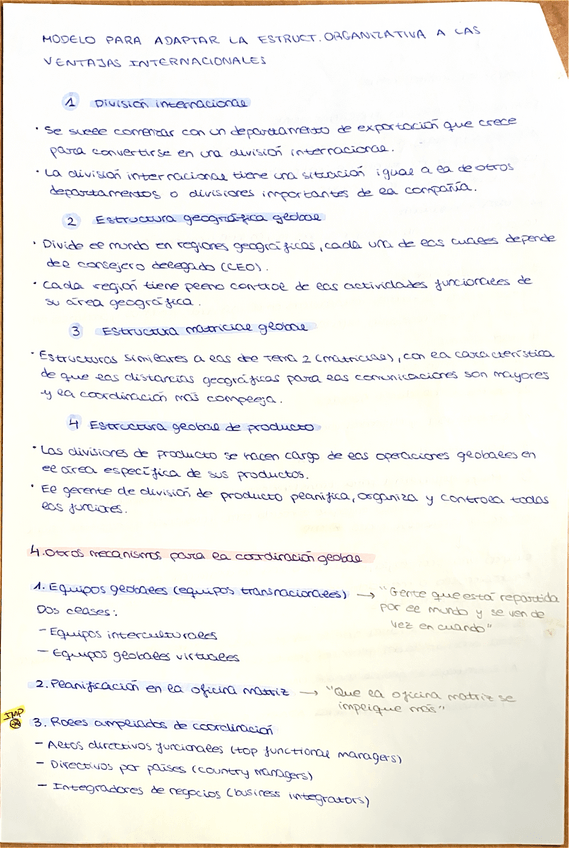 MODELO PARA ADAPTAR LA ESTRUCT. ORGANIZATIVA A LAS
VENTAJAS INTERNACIONALES
1 División internacional
· Se suele comenzar con un departamento de exportación que crece
para convertirse en una división internacional.
· La división internacional tiene una situación igual a la de otros
departamentos o divisiones importantes de la compañía.
2 Estructura geográfica global
· Divide el mundo en regiones geográficas, cada una de las cuales depende
del consejero delegado (CEO).
· Cada región tiene pleno control de las actividades funcionales de
su área geográfica.
3 Estructura matricial global
· Estructuras similares a las del Tema 2 (matricial), con la característica
de que las distancias geográficas para las comunicaciones son mayores
y la coordinación más compleja.
4 Estructura global de producto
· Las divisiones de producto se hacen cargo de las operaciones globales en
el área específica de sus productos.
· El gerente de división de producto planifica, organiza y controla todas
las funciones.
4. Otros mecanismos para la coordinación global
1. Equipos globales (equipos transnacionales) → "Gente que está repartida
por el mundo y se ven de
vez en cuando"
Dos clases:
- Equipos interculturales
- Equipos globales virtuales
2. Planificación en la oficina matriz → "Que la oficina matriz se
implique más"
IMP
3. Roles ampliados de coordinación
- Altos directivos funcionales (top functional managers)
- Directivos por países (country managers)
- Integradores de negocios (business integrators)